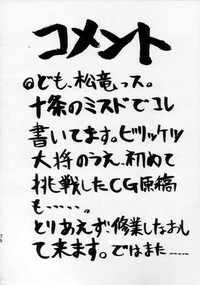 コメント
@ども、松竜っス。
十条のミスドでコレ
書いてます。ビリッケツ
大将のうえ、初めて
挑戦したCG原稿
も……。
とりあえず、修業しなおし
て来ます。ではまた……